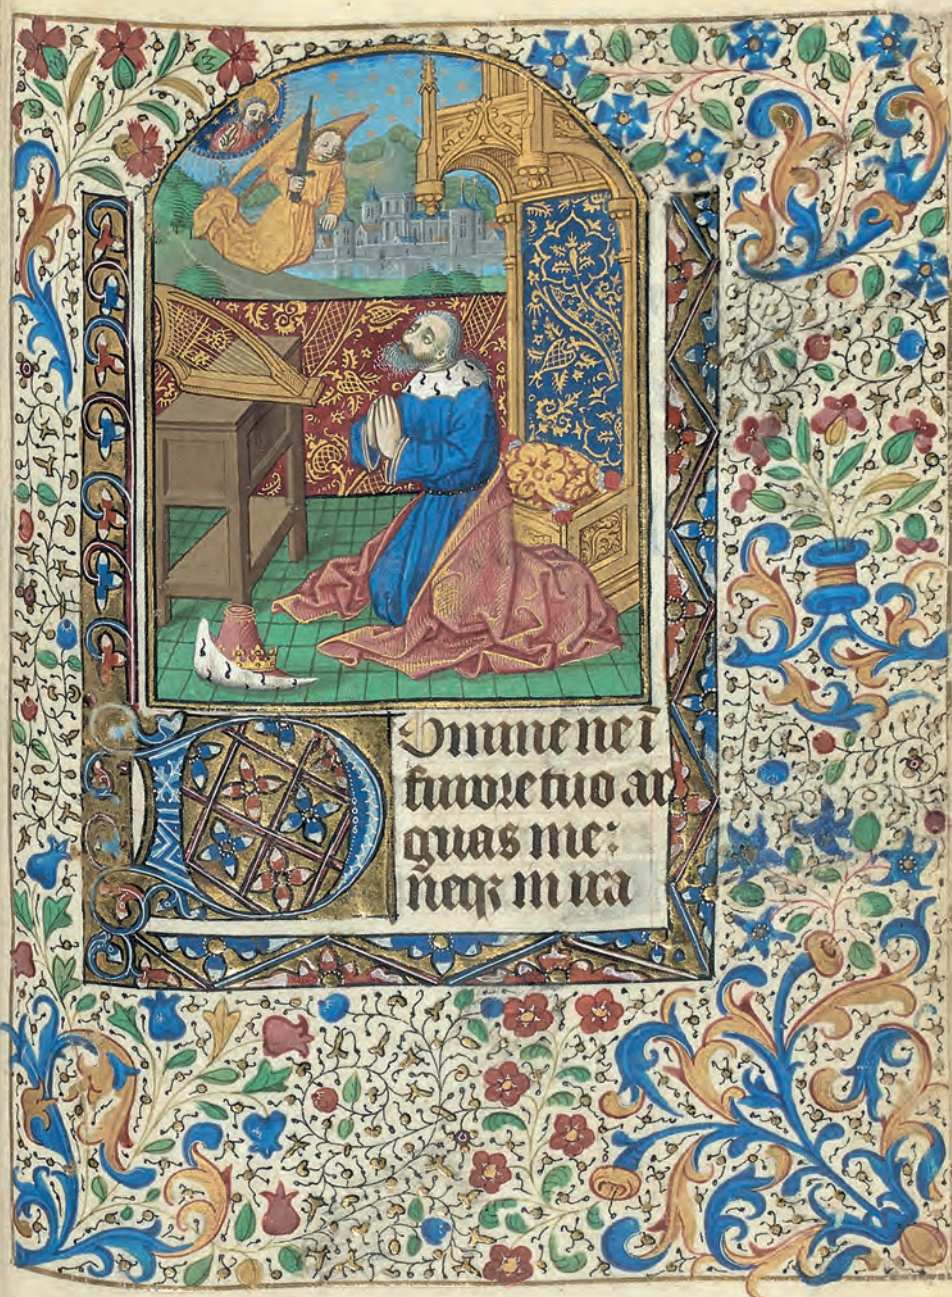 Domine ne ī
furore tuo ar
guas me:
neqꝫ in ira